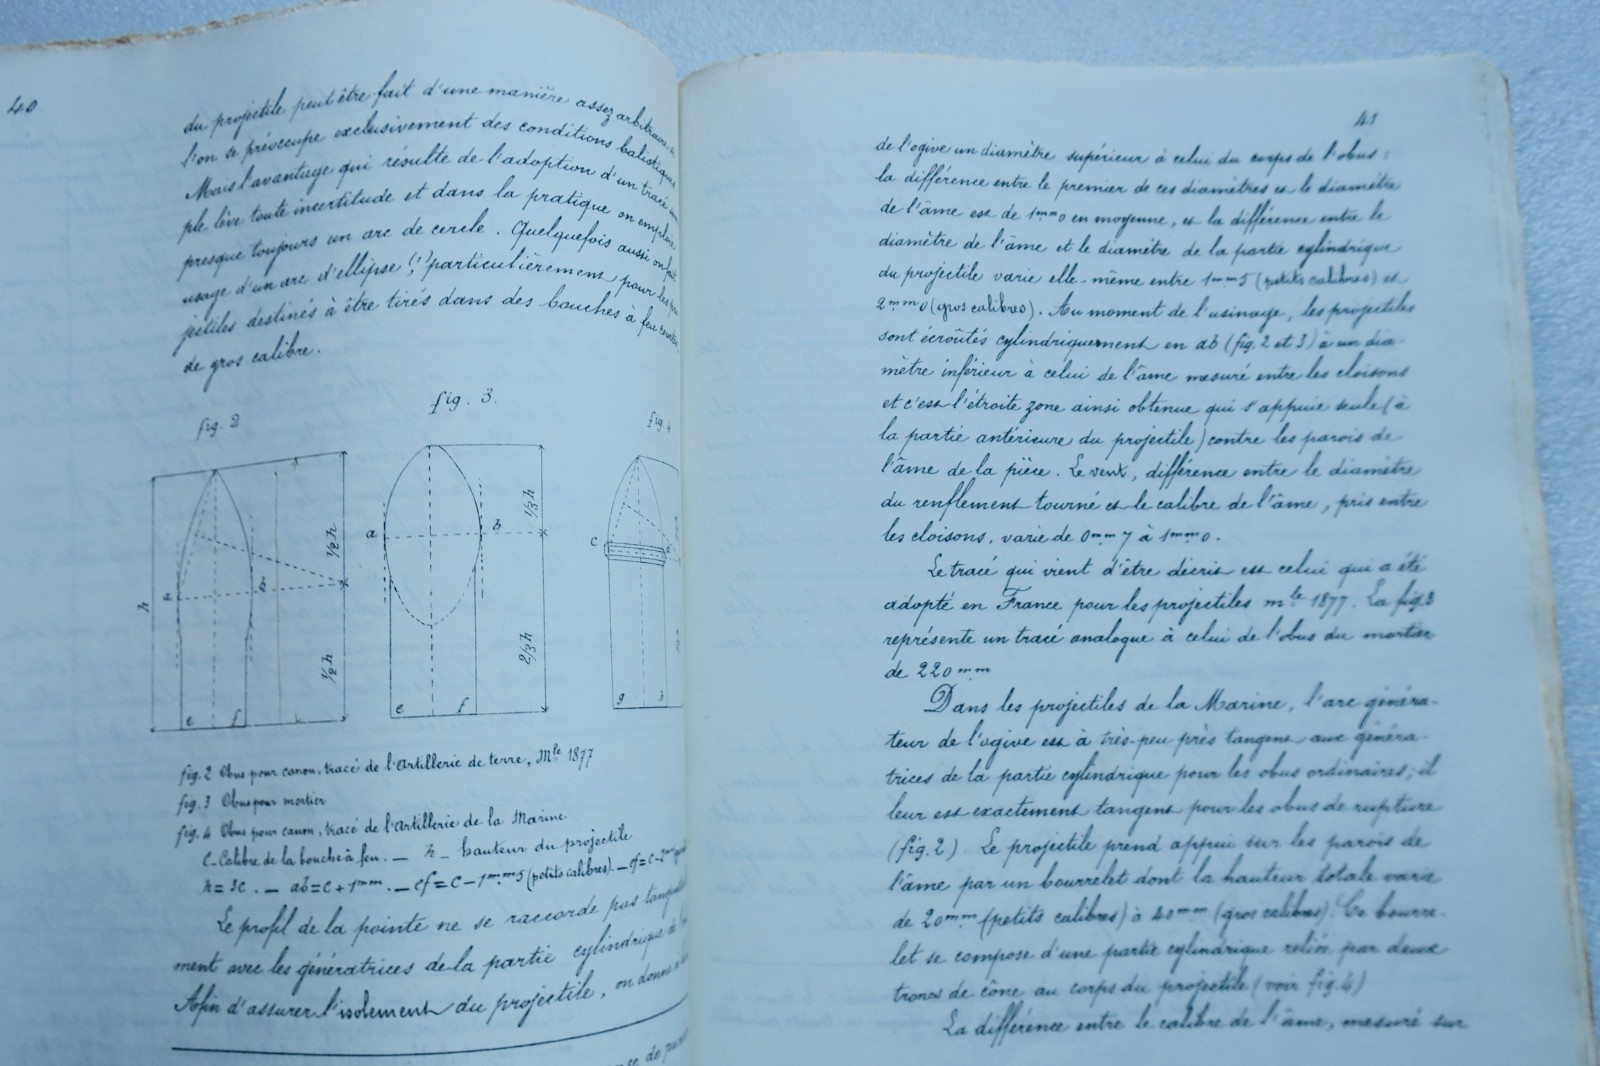 40
du projectile peut être fait d'une manière assez arbitraire, si
l'on se préoccupe exclusivement des conditions balistiques.
Mais l'avantage qui résulte de l'adoption d'un tracé sim
ple lève toute incertitude et dans la pratique on emploie
presque toujours un arc de cercle. Quelquefois aussi on fait
usage d'un arc d'ellipse (1) particulièrement pour les pro
jectiles destinés à être tirés dans des bouches à feu
de gros calibre.
fig. 2
fig. 3.
fig. 4
h
a
b
e
f
1/2 h
1/2 h
a
b
e
f
1/3 h
2/3 h
c
g
h
fig. 2 Obus pour canon, tracé de l'Artillerie de terre, Mle 1877
fig. 3 Obus pour mortier
fig. 4 Obus pour canon, tracé de l'Artillerie de la Marine
C-Calibre de la bouche à feu. — h - hauteur du projectile
h = 3c. — ab = c + 1mm. — ef = c - 1mm5 (petits calibres). — ef = c - 2mm
Le profil de la pointe ne se raccorde pas
ment avec les génératrices de la partie cylindrique de
Afin d'assurer l'isolement du projectile, on donne à
41
de l'ogive un diamètre supérieur à celui du corps de l'obus:
la différence entre le premier de ces diamètres et le diamètre
de l'âme est de 1mm0 en moyenne, et la différence entre le
diamètre de l'âme et le diamètre de la partie cylindrique
du projectile varie elle-même entre 1mm5 (petits calibres) et
2mm0 (gros calibres). Au moment de l'usinage, les projectiles
sont écroûtés cylindriquement en ab (fig. 2 et 3) à un dia-
mètre inférieur à celui de l'âme mesuré entre les cloisons
et c'est l'étroite zone ainsi obtenue qui s'appuie seule (à
la partie antérieure du projectile) contre les parois de
l'âme de la pièce. Le vent, différence entre le diamètre
du renflement tourné et le calibre de l'âme, pris entre
les cloisons, varie de 0mm7 à 1mm0.
Le tracé qui vient d'être décrit est celui qui a été
adopté en France pour les projectiles mle 1877. La fig. 3
représente un tracé analogue à celui de l'obus du mortier
de 220mm
Dans les projectiles de la Marine, l'arc généra-
teur de l'ogive est à très-peu près tangent aux généra-
trices de la partie cylindrique pour les obus ordinaires; il
leur est exactement tangent pour les obus de rupture
(fig. 2). Le projectile prend appui sur les parois de
l'âme par un bourrelet dont la hauteur totale varie
de 20mm (petits calibres) à 40mm (gros calibres). Ce bourre-
let se compose d'une partie cylindrique reliée par deux
troncs de cône au corps du projectile (voir fig. 4)
La différence entre le calibre de l'âme, mesuré sur